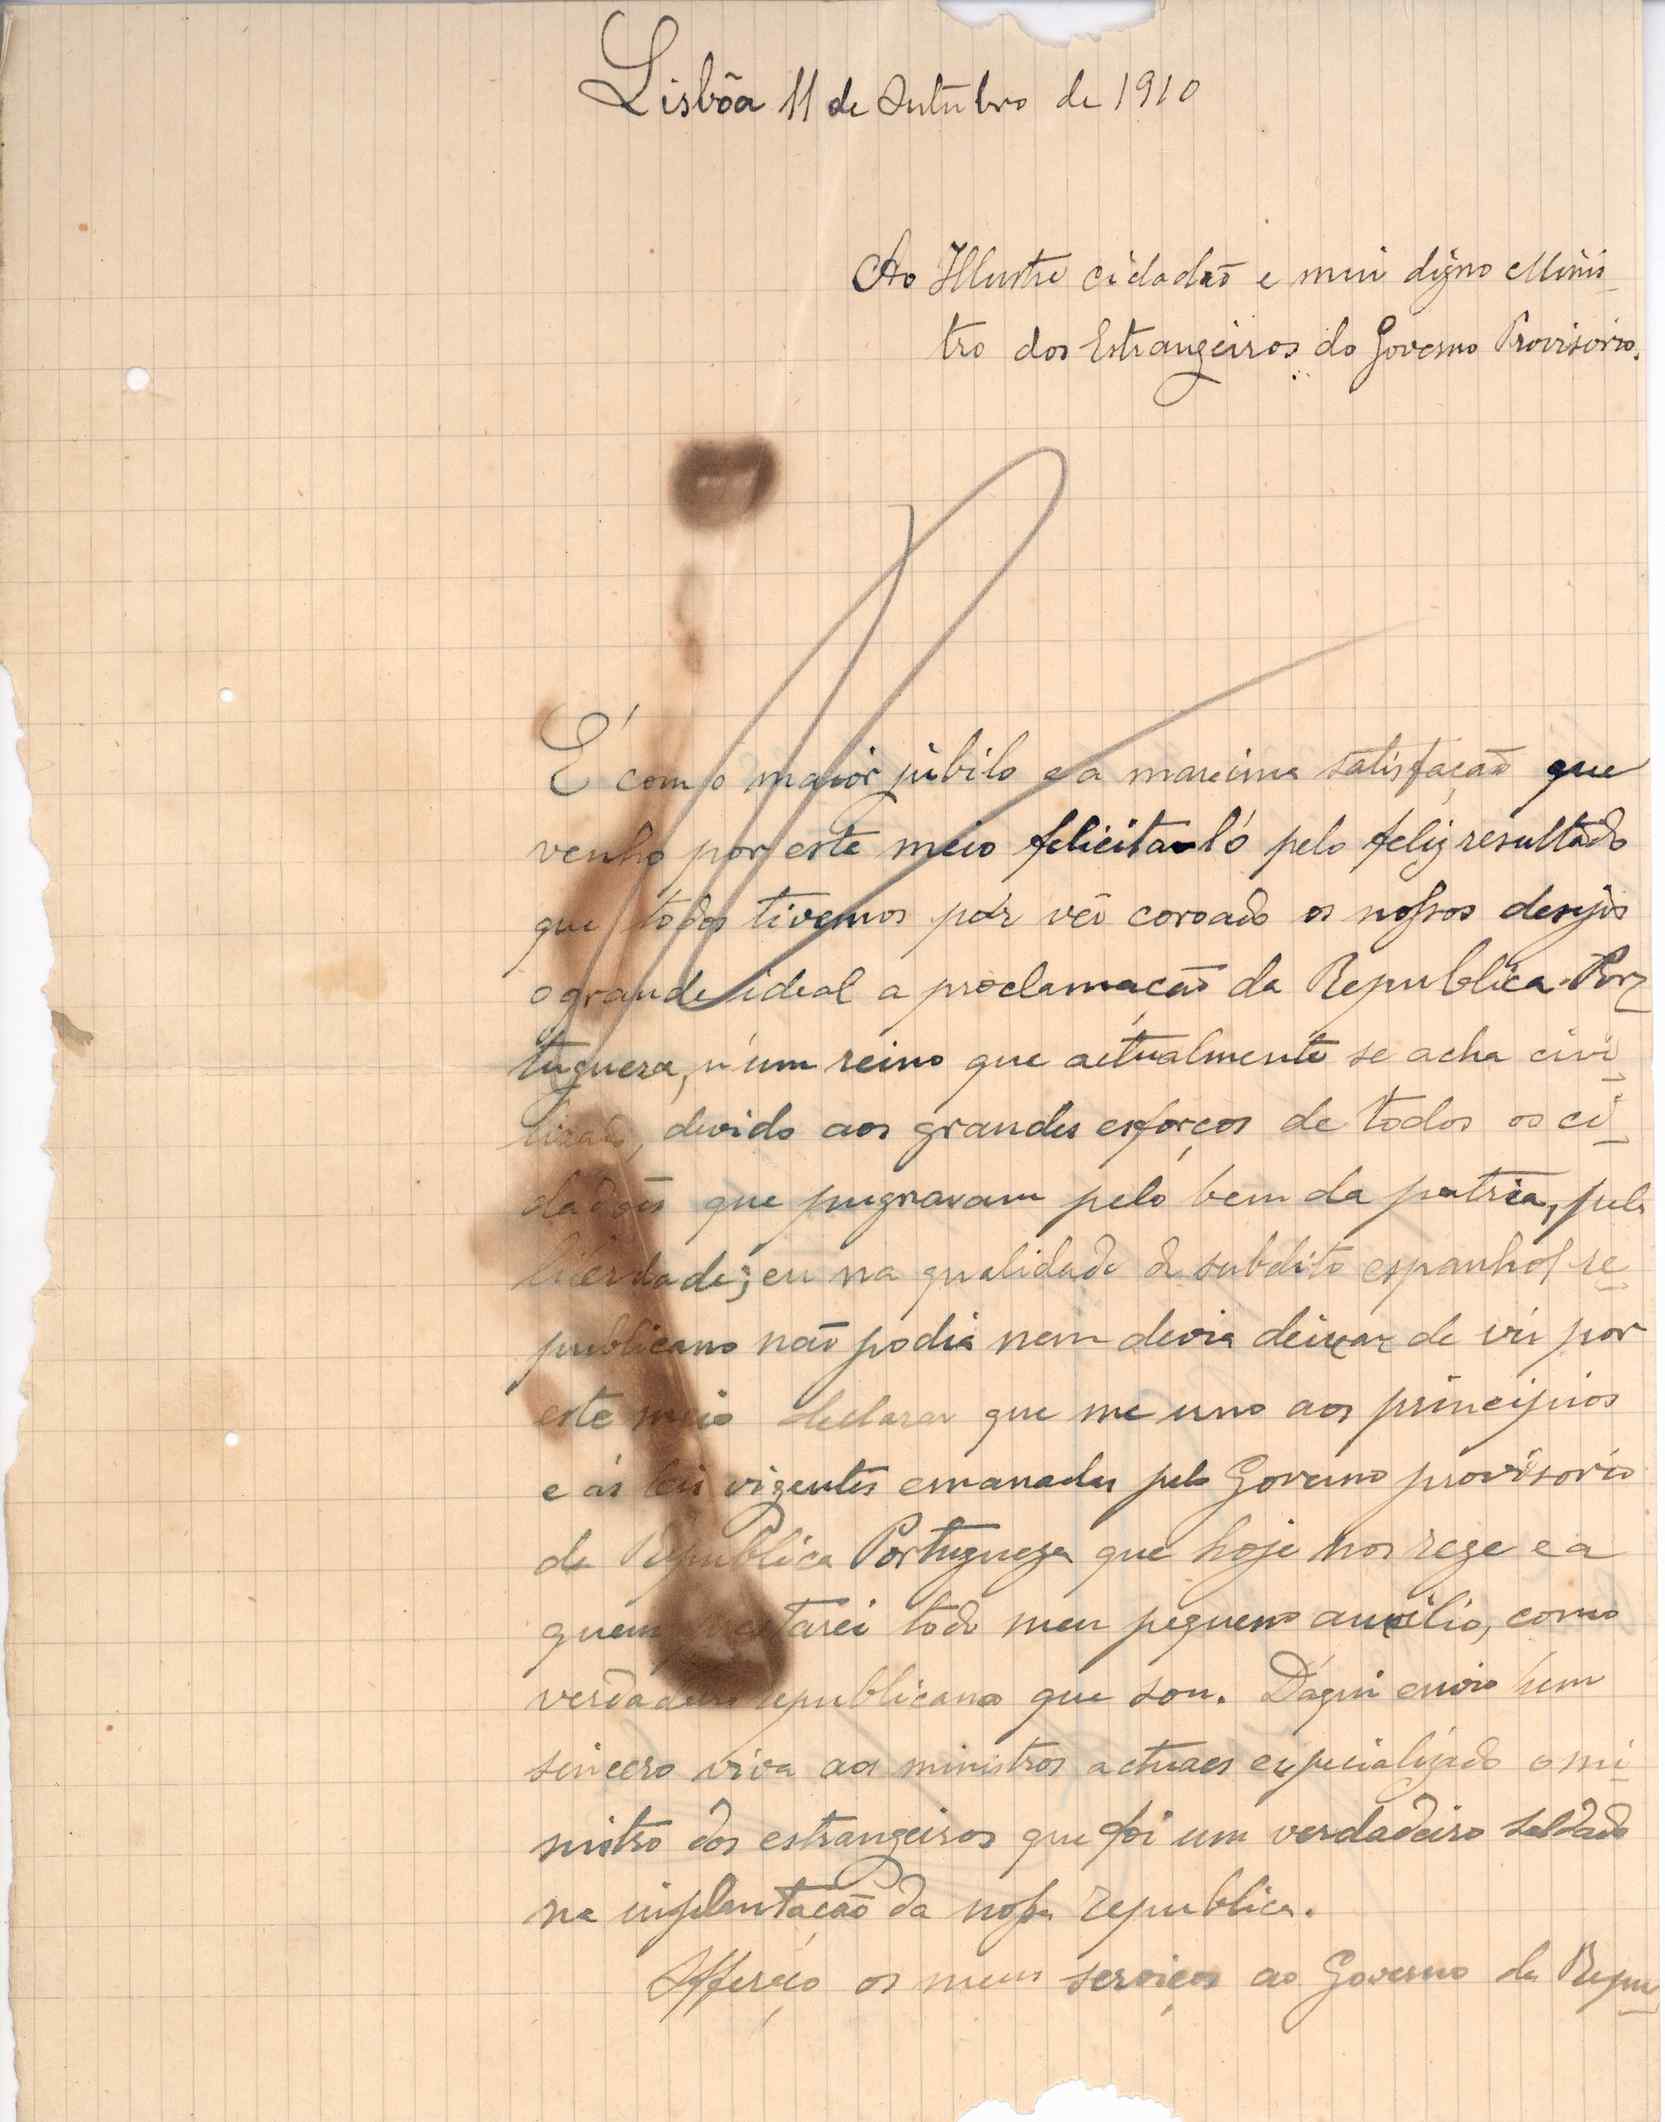 Lisbôa 11 de Outubro de 1910
Ao Illustre cidadão e mui digno Minis-
tro dos Estrangeiros do Governo Provisorio.
É com o maior jubilo e a maxima satisfação que
venho por este meio felicita-ló pelo feliz resultado
que todos tivemos por vêr coroado os nossos desejos
o grande ideal a proclamação da Republica Por-
tugueza, n'um reino que actualmente se acha civi-
lizado, devido aos grandes esforços de todos os ci-
dadões que pugnavam pelo bem da patria, pela
liberdade; eu na qualidade de subdito espanhol re-
publicano não podia nem devia deixar de vir por
este meio declarar que me uno aos principios
e ás leis vigentes emanadas pelo Governo provisorio
da Republica Portugueza que hoje nos rege e a
quem prestarei todo meu pequeno auxilio, como
verdadeiro republicano que sou. D'aqui envio hum
sincero viva aos ministros actuaes especializado o mi-
nistro dos estrangeiros que foi um verdadeiro soldado
na implantação da nossa republica.
Offereço os meus serviços ao Governo da Repu-